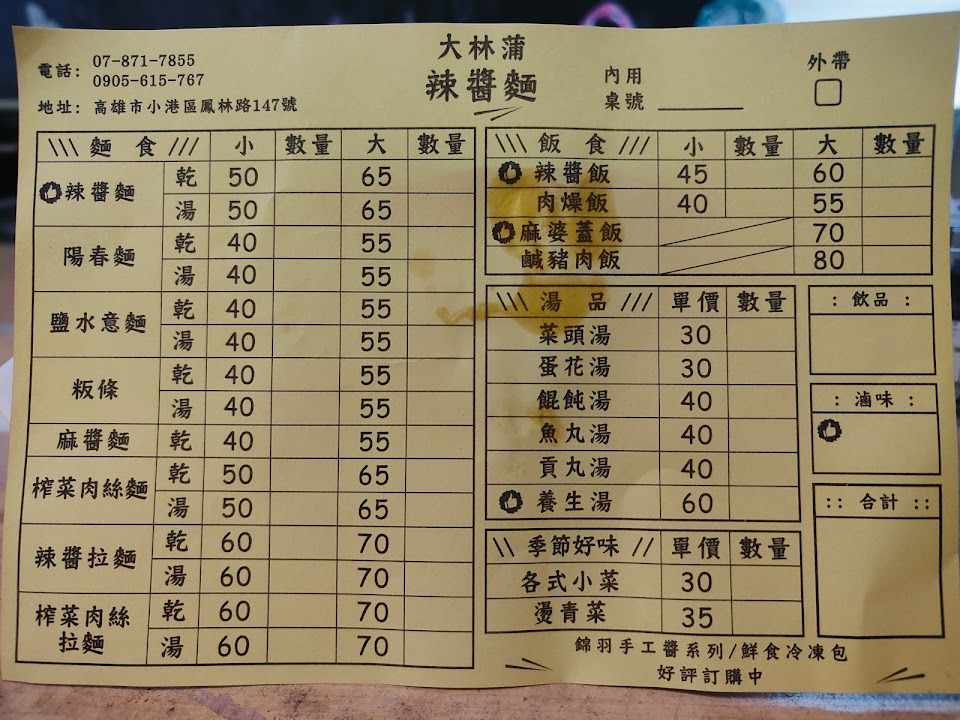 大林蒲
辣醬麵
電話: 07-871-7855
0905-615-767
地址: 高雄市小港區鳳林路147號
內用
桌號
外帶
\\\ 麵 食 /// 小 數量 大 數量
辣醬麵 乾 50 65
湯 50 65
陽春麵 乾 40 55
湯 40 55
鹽水意麵 乾 40 55
湯 40 55
粄條 乾 40 55
湯 40 55
麻醬麵 乾 40 55
榨菜肉絲麵 乾 50 65
湯 50 65
辣醬拉麵 乾 60 70
湯 60 70
榨菜肉絲
拉麵 乾 60 70
湯 60 70
\\\ 飯 食 /// 小 數量 大 數量
辣醬飯 45 60
肉燥飯 40 55
麻婆蓋飯 70
鹹豬肉飯 80
\\\ 湯 品 /// 單價 數量
菜頭湯 30
蛋花湯 30
餛飩湯 40
魚丸湯 40
貢丸湯 40
養生湯 60
\\ 季節好味 // 單價 數量
各式小菜 30
燙青菜 35
: 飲品 :
: 滷味 :
:: 合計 ::
錦羽手工醬系列/鮮食冷凍包
好評訂購中